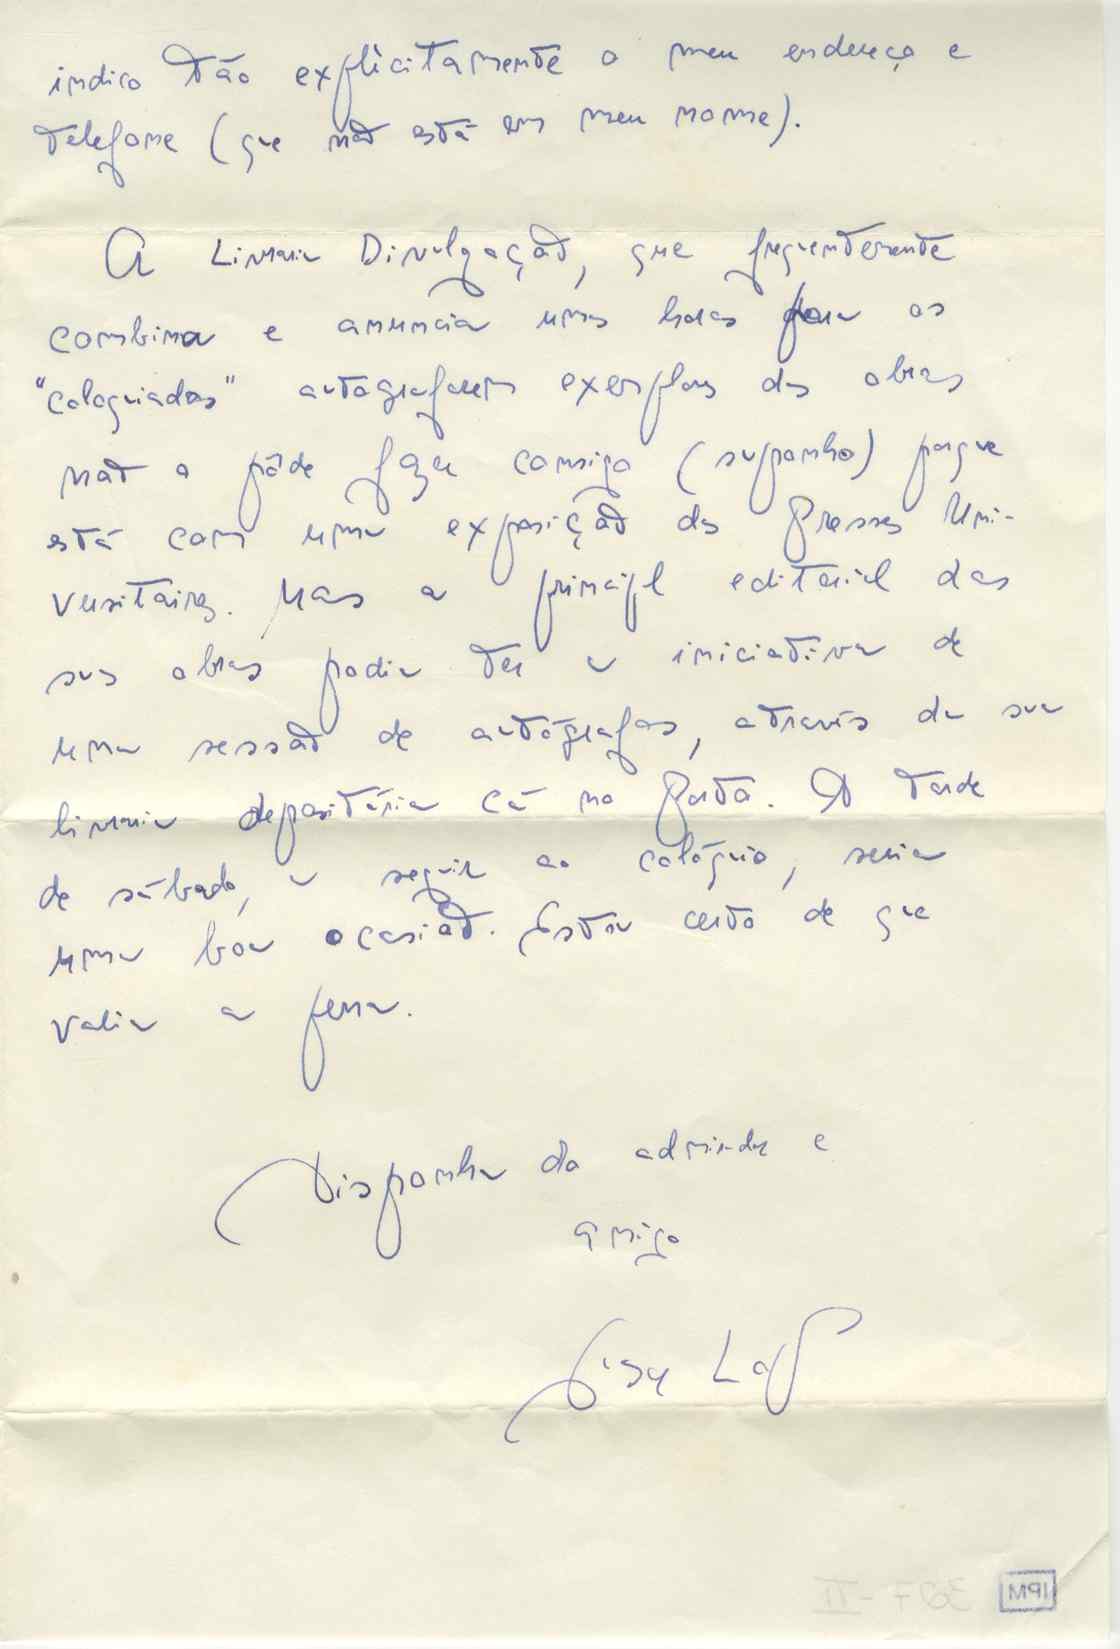 indico tão explìcitamente o meu endereço e
telefone (que não está em meu nome).
A Livraria Divulgação, que frequentemente
combina e anuncia umas horas para os
"coloquiados" autografarem exemplares das obras
não o pôde fazer consigo (suponho) porque
está com uma exposição das Presses Uni-
versitaires. Mas a principal editorial das
suas obras podia ter a iniciativa de
uma sessão de autógrafos, através da sua
livraria depositária cá no Porto. A tarde
de sábado, a seguir ao colóquio, seria
uma boa ocasião. Estou certo de que
valia a pena.
Disponha do admirador e
amigo
IPM
307-II